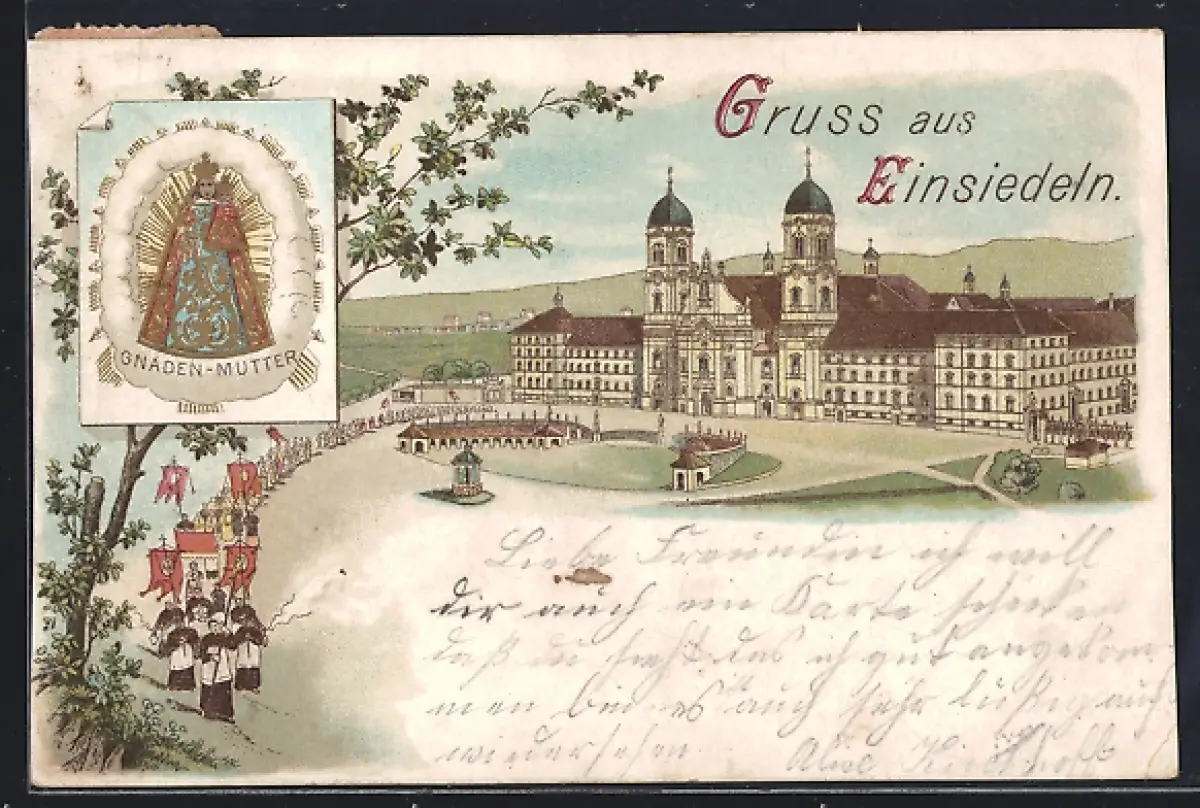 Gruss aus
Einsiedeln.
GNADEN-MUTTER
Liebe Freundin ich will
dir auch ein Karte schicken
daß du siehst das ich gut angekom-
men bin es auch sehr lustig auf
wiedersehen.